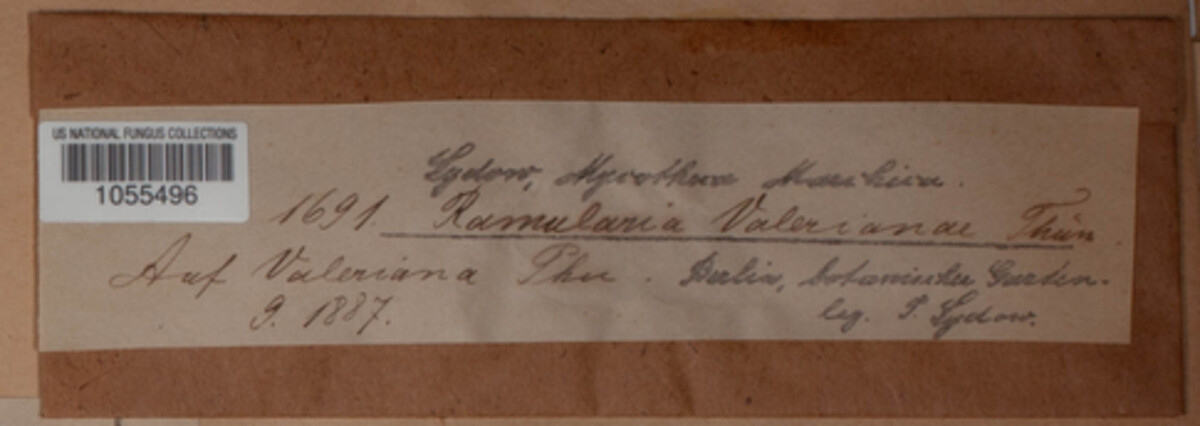 US NATIONAL FUNGUS COLLECTIONS
1055496
Sydow, Mycotheca Marchica.
1691. Ramularia Valerianae Thüm.
Auf Valeriana Phu. Berlin, botanischer Garten.
9. 1887. leg. P. Sydow.